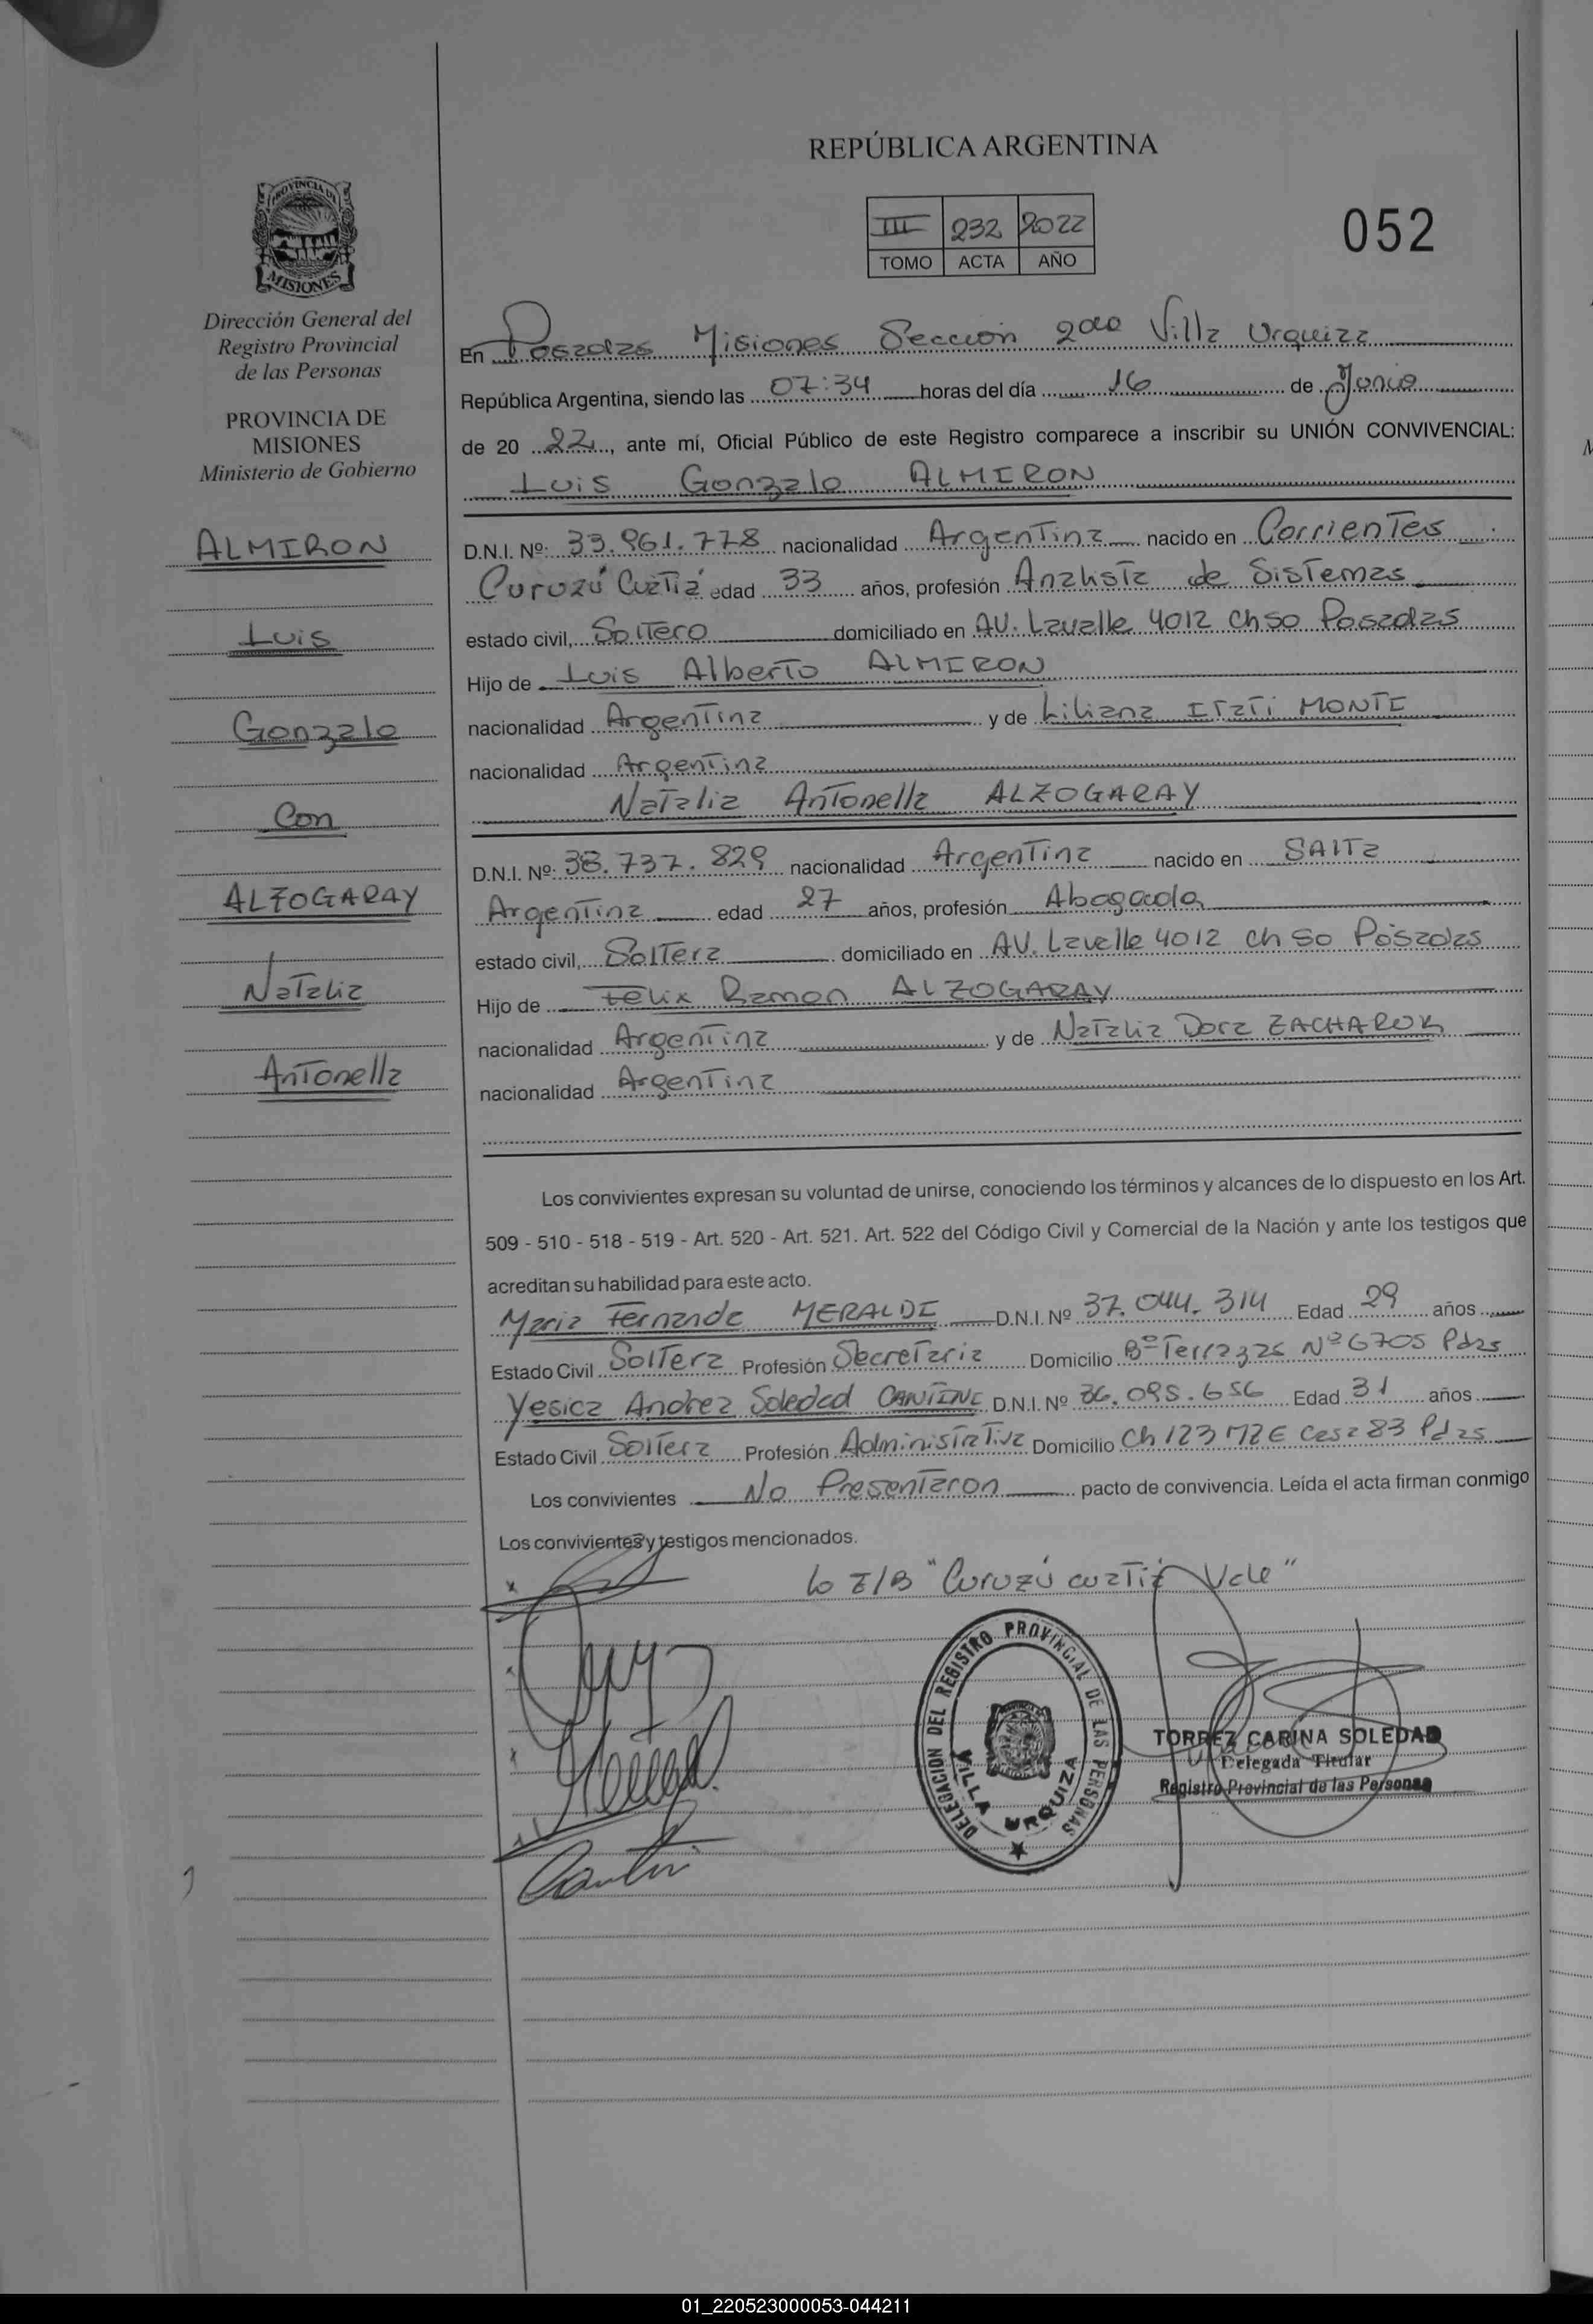 REPÚBLICA ARGENTINA
III 232 2022
TOMO ACTA AÑO
052
PROVINCIA DE
MISIONES
Dirección General del
Registro Provincial
de las Personas
PROVINCIA DE
MISIONES
Ministerio de Gobierno
ALMIRON
Luis
Gonzalo
Con
ALZOGARAY
Natalia
Antonella
En Posadas Misiones Sección 2da Villa Urquiza
República Argentina, siendo las 07:34 horas del día 16 de Junio
de 20 22, ante mí, Oficial Público de este Registro comparece a inscribir su UNIÓN CONVIVENCIAL:
Luis Gonzalo ALMIRON
D.N.I. Nº: 33.961.778 nacionalidad Argentina nacido en Corrientes
Curuzú Cuatiá edad 33 años, profesión Analista de Sistemas
estado civil, Soltero domiciliado en AV. Lavalle 4012 ch 50 Posadas
Hijo de Luis Alberto ALMIRON
nacionalidad Argentina y de Liliana Itati MONTE
nacionalidad Argentina
Natalia Antonella ALZOGARAY
D.N.I. Nº: 38.737.829 nacionalidad Argentina nacido en SAlta
Argentina edad 27 años, profesión Abogada
estado civil, Soltera domiciliado en AV. Lavalle 4012 ch 50 Posadas
Hijo de Felix Ramon ALZOGARAY
nacionalidad Argentina y de Natalia Dora ZACHARUK
nacionalidad Argentina
Los convivientes expresan su voluntad de unirse, conociendo los términos y alcances de lo dispuesto en los Art.
509 - 510 - 518 - 519 - Art. 520 - Art. 521. Art. 522 del Código Civil y Comercial de la Nación y ante los testigos que
acreditan su habilidad para este acto.
Maria Fernanda MERALDI D.N.I. Nº 37.044.314 Edad 29 años
Estado Civil Soltera Profesión Secretaria Domicilio Bº Terrazas Nº 6705 Pdas
Yesica Andrea Soledad CANTINE D.N.I. Nº 36.095.656 Edad 31 años
Estado Civil Soltera Profesión Administrativa Domicilio Ch 123 MZ E Casa 83 Pdas
Los convivientes No Presentaron pacto de convivencia. Leída el acta firman conmigo
Los convivientes y testigos mencionados.
Lo E/B "Curuzú cuatiá Vale"
DELEGACION DEL REGISTRO PROVINCIAL DE LAS PERSONAS
VILLA URQUIZA
TORREZ CARINA SOLEDAD
Delegada Titular
Registro Provincial de las Personas
01_220523000053-044211